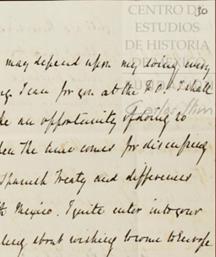 CENTRO DE
ESTUDIOS
DE HISTORIA
30
may depend upon my doing every
I can for you at the F.O. I shall
an opportunity of doing so
when the time comes for discussing
Spanish Treaty and differences
Mexico. I quite enter into your
about wishing to come to Europe